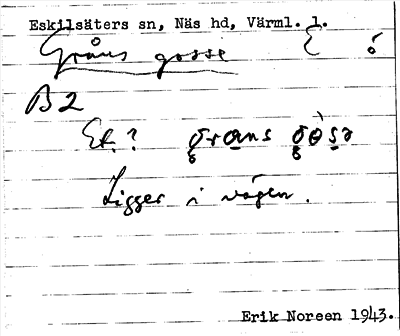 Eskilsäters sn, Näs hd, Värml. l.
Gråns gosse
B2
Ligger i vägen.
Erik Noreen 1943.